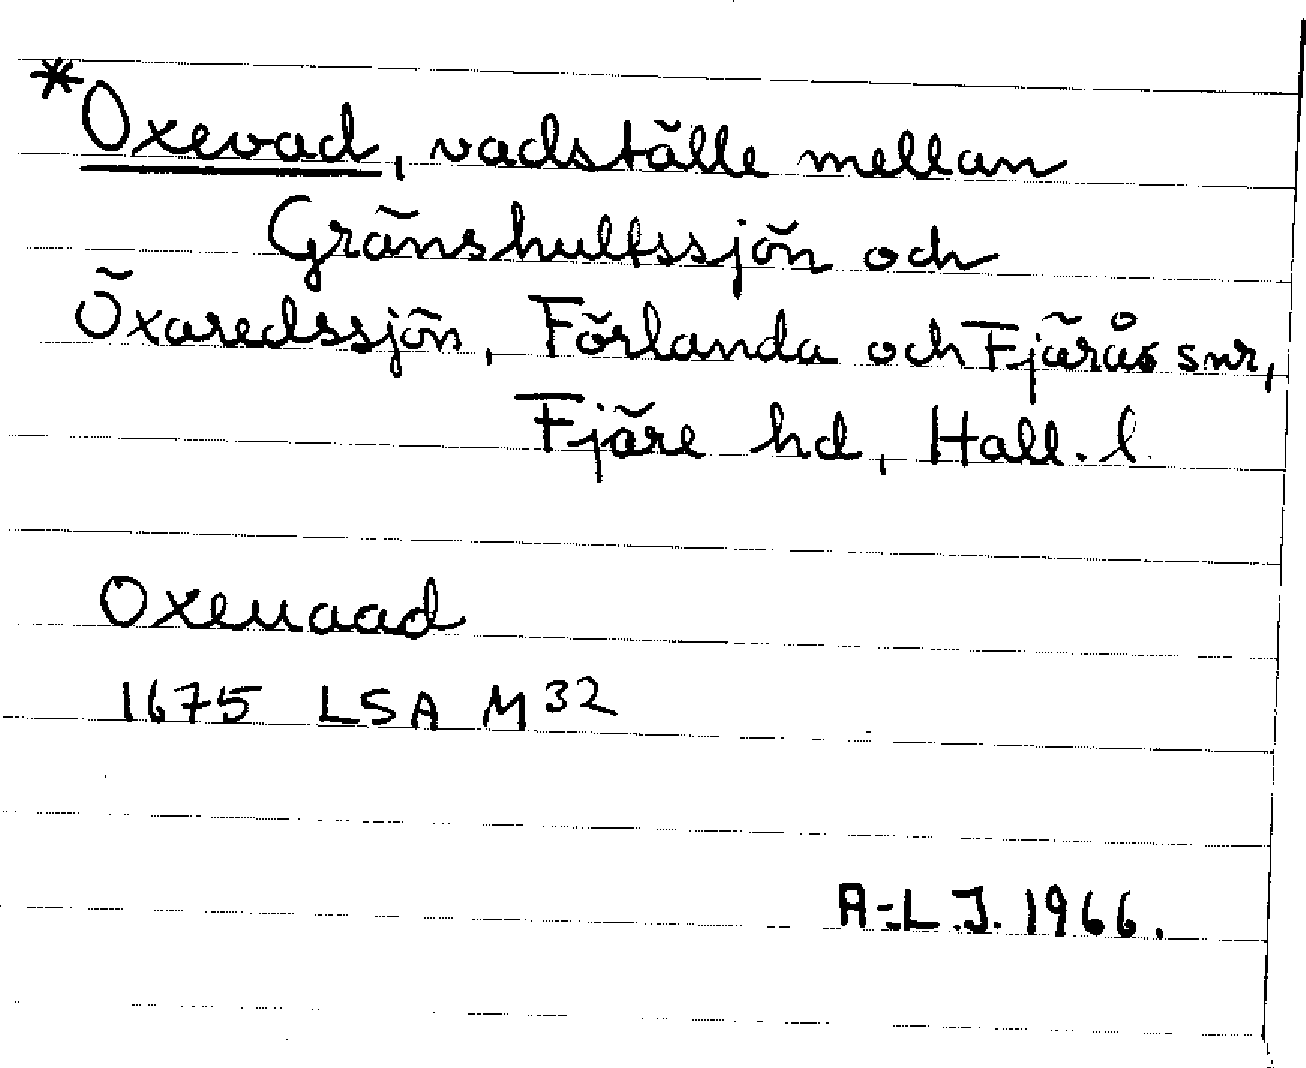 *Oxevad, vadställe mellan
Gränshultssjön och
Öxaredssjön, Förlanda och Fjärås snr,
Fjäre hd, Hall. l.
Oxeuaad
1675 LSA M32
A-L.J. 1966.